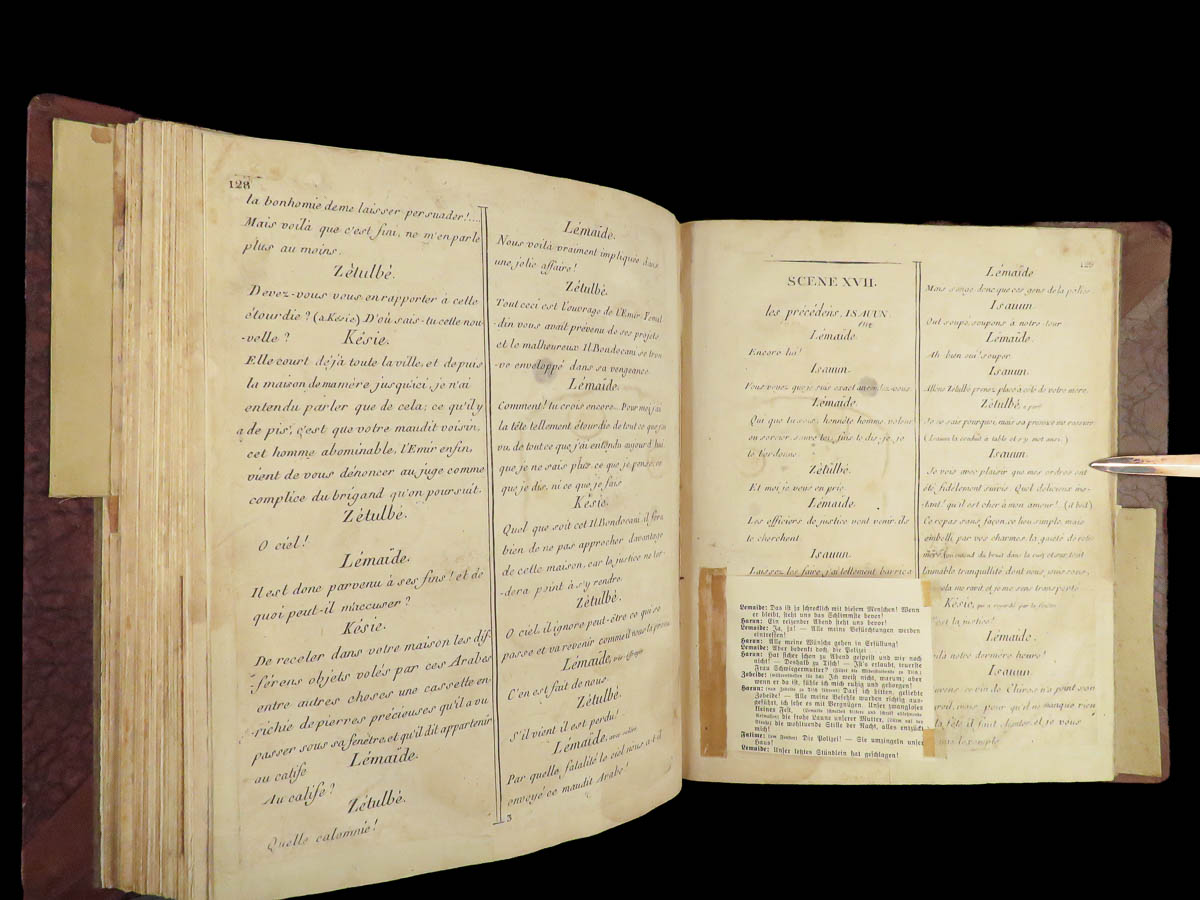 128
la bonhomie de me laisser persuader!....
Mais voilà que c'est fini, ne m'en parle
plus au moins.
Zétulbé.
Devez-vous vous en rapporter à cette
étourdie? (à Késie) D'où sais-tu cette nou-
-velle?
Késie.
Elle court déjà toute la ville, et depuis
la maison de ma mère jusqu'ici, je n'ai
entendu parler que de cela; ce qu'il y
a de pis, c'est que votre maudit voisin,
cet homme abominable, l'Emir enfin,
vient de vous dénoncer au juge comme
complice du brigand qu'on poursuit.
Zétulbé.
O ciel!
Lémaïde.
Il est donc parvenu à ses fins! et de
quoi peut-il m'accuser?
Késie.
De receler dans votre maison les dif-
-férens objets volés par ces Arabes
entre autres choses une cassette en-
richie de pierres précieuses qu'il a vu
passer sous sa fenêtre, et qu'il dit appartenir
au calife
Lémaïde.
Au calife?
Zétulbé.
Quelle calomnie!
Lémaïde.
Nous voilà vraiment impliquée dans
une jolie affaire!
Zétulbé.
Tout ceci est l'ouvrage de l'Emir. Yemal-
din vous avait prévenu de ses projets
et le malheureux Il Bondocani se trou-
-ve enveloppé dans sa vengeance.
Lémaïde.
Comment! tu crois encore... Pour moi j'ai
la tête tellement étourdie de tout ce que j'ai
vu, de tout ce que j'ai entendu aujourd'hui
que je ne sais plus ce que je pense, ce
que je dis, ni ce que je fais
Késie.
Quel que soit cet Il Bondocani, il fera
bien de ne pas approcher davantage
de cette maison, car la justice ne tar-
-dera point à s'y rendre.
Zétulbé.
O ciel, il ignore peut-être ce qui se
passe et va revenir comme il nous l'a promis
Lémaïde, très effrayée
C'en est fait de nous
Zétulbé.
S'il vient il est perdu!
Lémaïde,
Par quelle fatalité le ciel nous a-t-il
envoyé ce maudit Arabe!
3
129
SCENE XVII.
les précédens, ISAUUN.
Lémaïde.
Encore lui!
Isauun.
Vous voyez que je suis exact au rendez-vous.
Lémaïde.
Qui que tu sois, honnête homme, voleur
ou sorcier, sauve toi, fuis te dis-je, je
te l'ordonne.
Zétulbé.
Et moi je vous en prie
Lémaïde.
Les officiers de justice vont venir ils
te cherchent
Isauun.
Laissez les faire, j'ai tellement barrica
Lémaïde
Mais songe donc que ces gens de la police
Isauun.
Ont soupé, soupons à notre tour
Lémaïde.
Ah bien oui! souper
Isauun.
Allons Zétulbé prenez place à côté de votre mère.
Zétulbé, à part
Je ne sais pourquoi, mais sa présence me rassure
(Isauun la conduit à table et s'y met aussi.)
Isauun.
Je vois avec plaisir que mes ordres ont
été fidèlement suivis. Quel délicieux ins-
-tant! qu'il est cher à mon amour!
Ce repas sans façon, ce lieu simple, mais
embelli par vos charmes, la gaieté de votre
mère
l'aimable tranquillité dont nous jouissons,
cela me ravit, et je me sens transporté
Késie, qui a regardé par la fenêtre
C'est la justice!
Lémaïde.
notre dernière heure!
Isauun.
ce vin de Chiras n'a point son
pareil, mais pour qu'il ne manque rien
à la fête, il faut chanter, et je vous
Lemaide: Das ist ja schrecklich mit diesem Menschen! Wenn
er bleibt, steht uns das Schlimmste bevor!
Harun: Ein reizender Abend steht uns bevor!
Lemaide: Ja, ja! — Alle meine Befürchtungen werden
eintreffen!
Harun: Alle meine Wünsche gehen in Erfüllung!
Lemaide: Aber bedenkt doch, die Polizei
Harun: Hat sicher schon zu Abend gespeist und wir noch
nicht! — Deshalb zu Tisch! — Ist's erlaubt, teuerste
Frau Schwiegermutter?
Zobeide: Ich weiß nicht, warum; aber
wenn er da ist, fühle ich mich ruhig und geborgen!
Harun: Darf ich bitten, geliebte
Zobeide! — Alle meine Befehle wurden richtig aus-
geführt, ich sehe es mit Vergnügen. Unser zwangloses
kleines Fest,
die frohe Laune unserer Mutter,
die wohltuende Stille der Nacht, alles entzückt
mich!
Fatime: (am Fenster) Die Polizei! — Sie umzingeln unser
Haus!
Lemaide: Unser letztes Stündlein hat geschlagen!